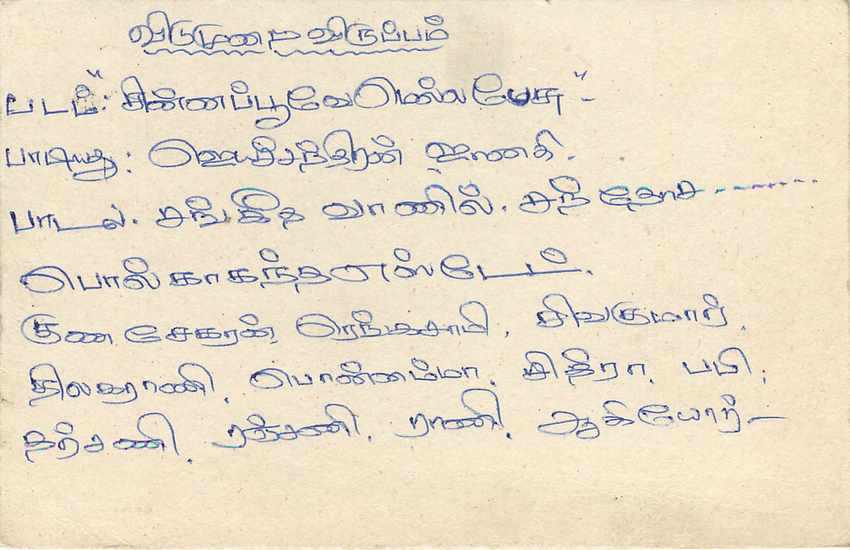 விடுமுறை விருப்பம்
படம்: "சின்னப்பூவே மெல்ல பேசு" -
பாடியது: ஜெயச்சந்திரன் ஜானகி.
பாடல். சங்கீத வானில். சந்தோச --------
பொல்காகந்த எஸ்டேட்.
குணசேகரன் ரெங்கசாமி, சிவகுமார்,
திலகராணி, பொன்னம்மா, சித்ரா, பபி,
தர்சணி, ரஞ்சணி, ராணி, ஆகியோர் —